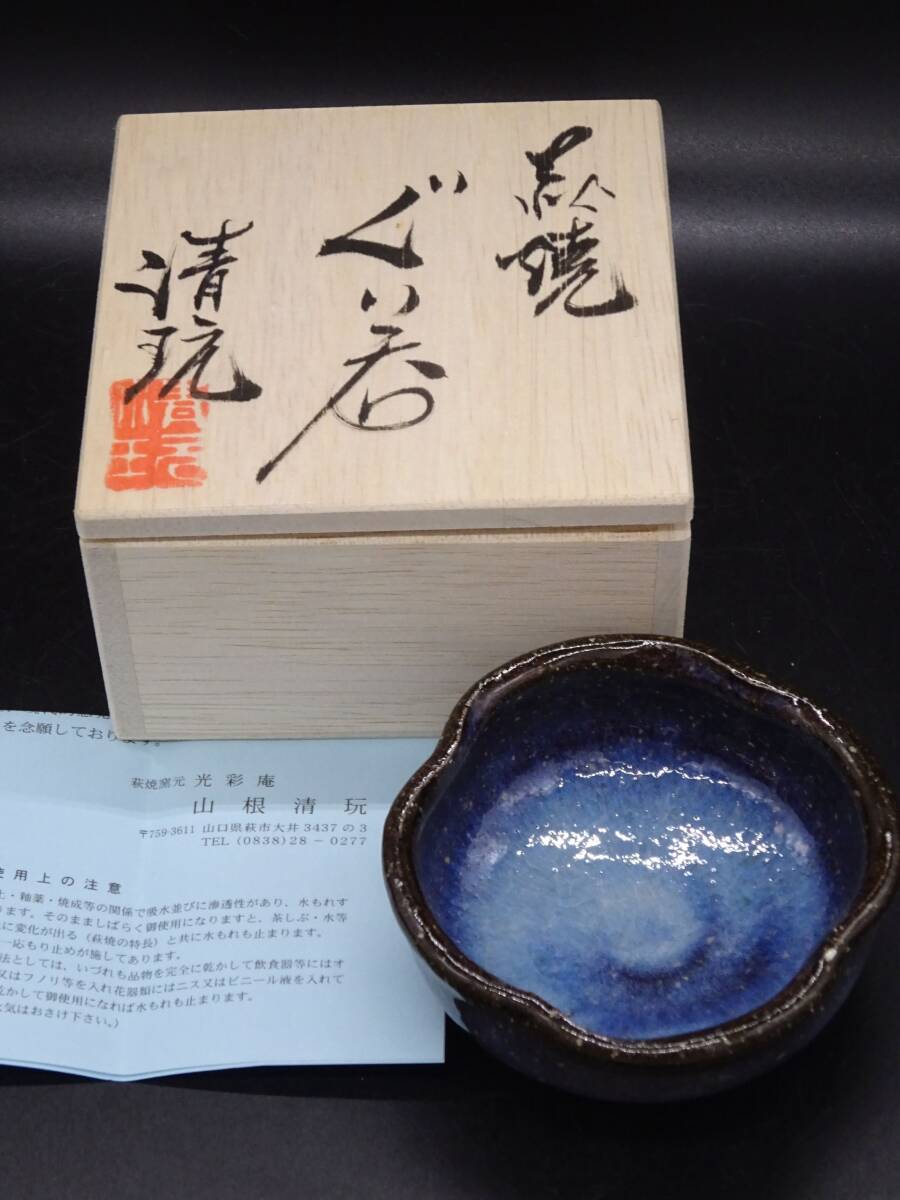 萩焼
ぐい呑
清玩
を念願しております。
萩焼窯元 光彩庵
山根清玩
〒759-3611 山口県萩市大井3437の3
TEL (0838)28-0277
使用上の注意
土・釉薬・焼成等の関係で吸水並びに滲透性があり、水もれす
ります。そのまましばらく御使用になりますと、茶しぶ・水等
に変化が出る(萩焼の特長)と共に水もれも止まります。
一応もり止めが施してあります。
法としては、いづれも品物を完全に乾かして飲食器等にはオ
又はフノリ等を入れ花器類にはニス又はビニール液を入れて
乾かして御使用になれば水もれも止まります。
火気はおさけ下さい。)